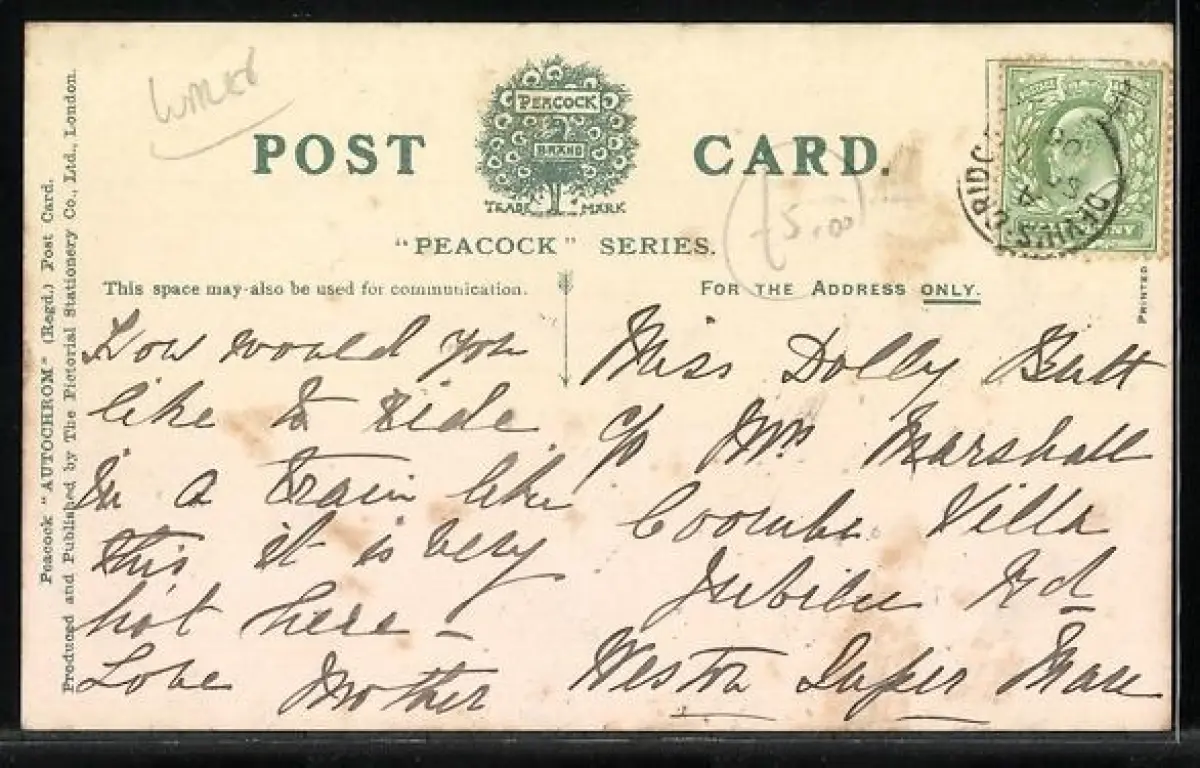 POST CARD.
PEACOCK
BRAND
TRADE MARK
"PEACOCK" SERIES.
This space may also be used for communication.
FOR THE ADDRESS ONLY.
How would you
like to ride
in a train like
this it is very
hot here –
Love Mother
Miss Dolly Butt
c/o Mrs Marshall
Coombe Villa
Jubilee Rd
Weston Super Mare
Peacock "AUTOCHROM" (Regd.) Post Card.
Produced and Published by The Pictorial Stationery Co., Ltd., London.
PRINTED
5.00